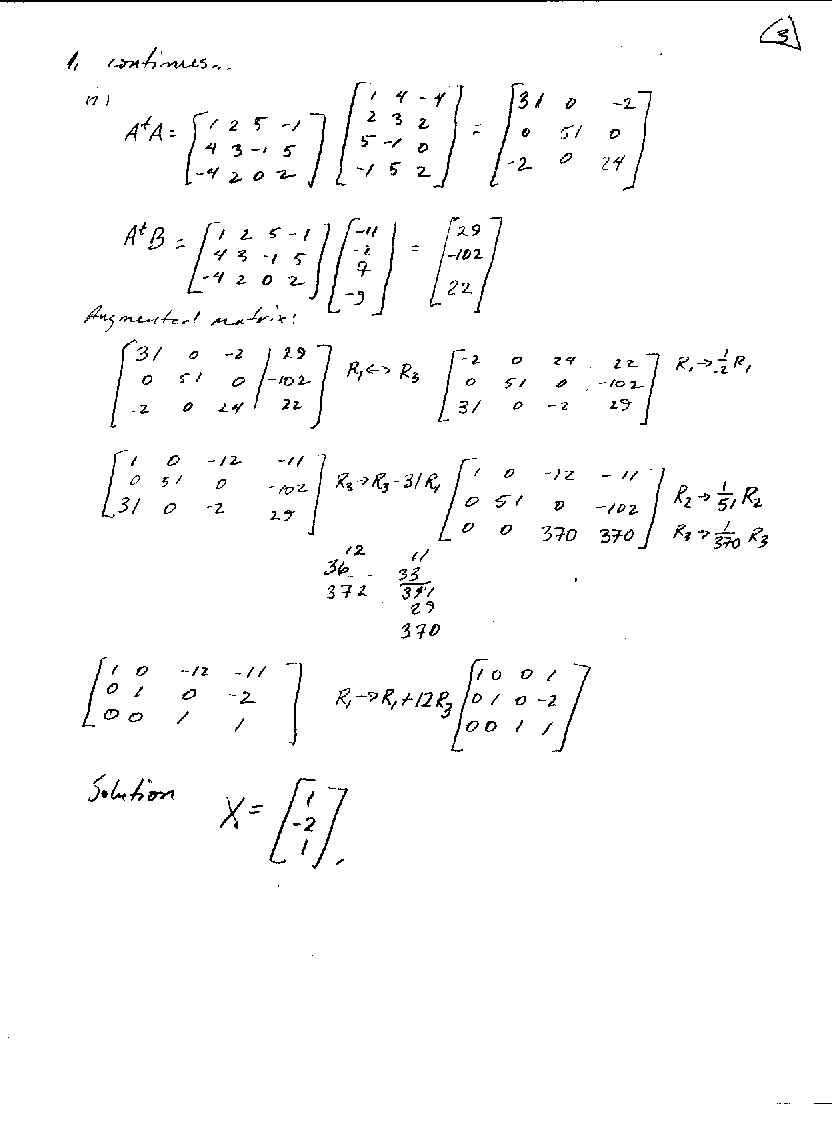 3
1. continues...
A^tA = [1 2 5 -1; 4 3 -1 5; -4 2 0 2] [1 4 -4; 2 3 2; 5 -1 0; -1 5 2] = [31 0 -2; 0 51 0; -2 0 24]
A^tB = [1 2 5 -1; 4 3 -1 5; -4 2 0 2] [-11; -2; 7; -9] = [29; -102; 22]
Augmented matrix:
[31 0 -2 | 29; 0 51 0 | -102; -2 0 24 | 22] R₁ <-> R₃ [-2 0 24 22; 0 51 0 -102; 31 0 -2 29] R₁ → 1/-2 R₁
[1 0 -12 -11; 0 51 0 -102; 31 0 -2 29] R₃ → R₃ - 31R₁ [1 0 -12 -11; 0 51 0 -102; 0 0 370 370] R₂ → 1/51 R₂
R₃ → 1/370 R₃
12 11
36 33
372 341
29
370
[1 0 -12 -11; 0 1 0 -2; 0 0 1 1] R₁ → R₁ + 12R₃ [1 0 0 1; 0 1 0 -2; 0 0 1 1]
Solution X = [1; -2; 1].